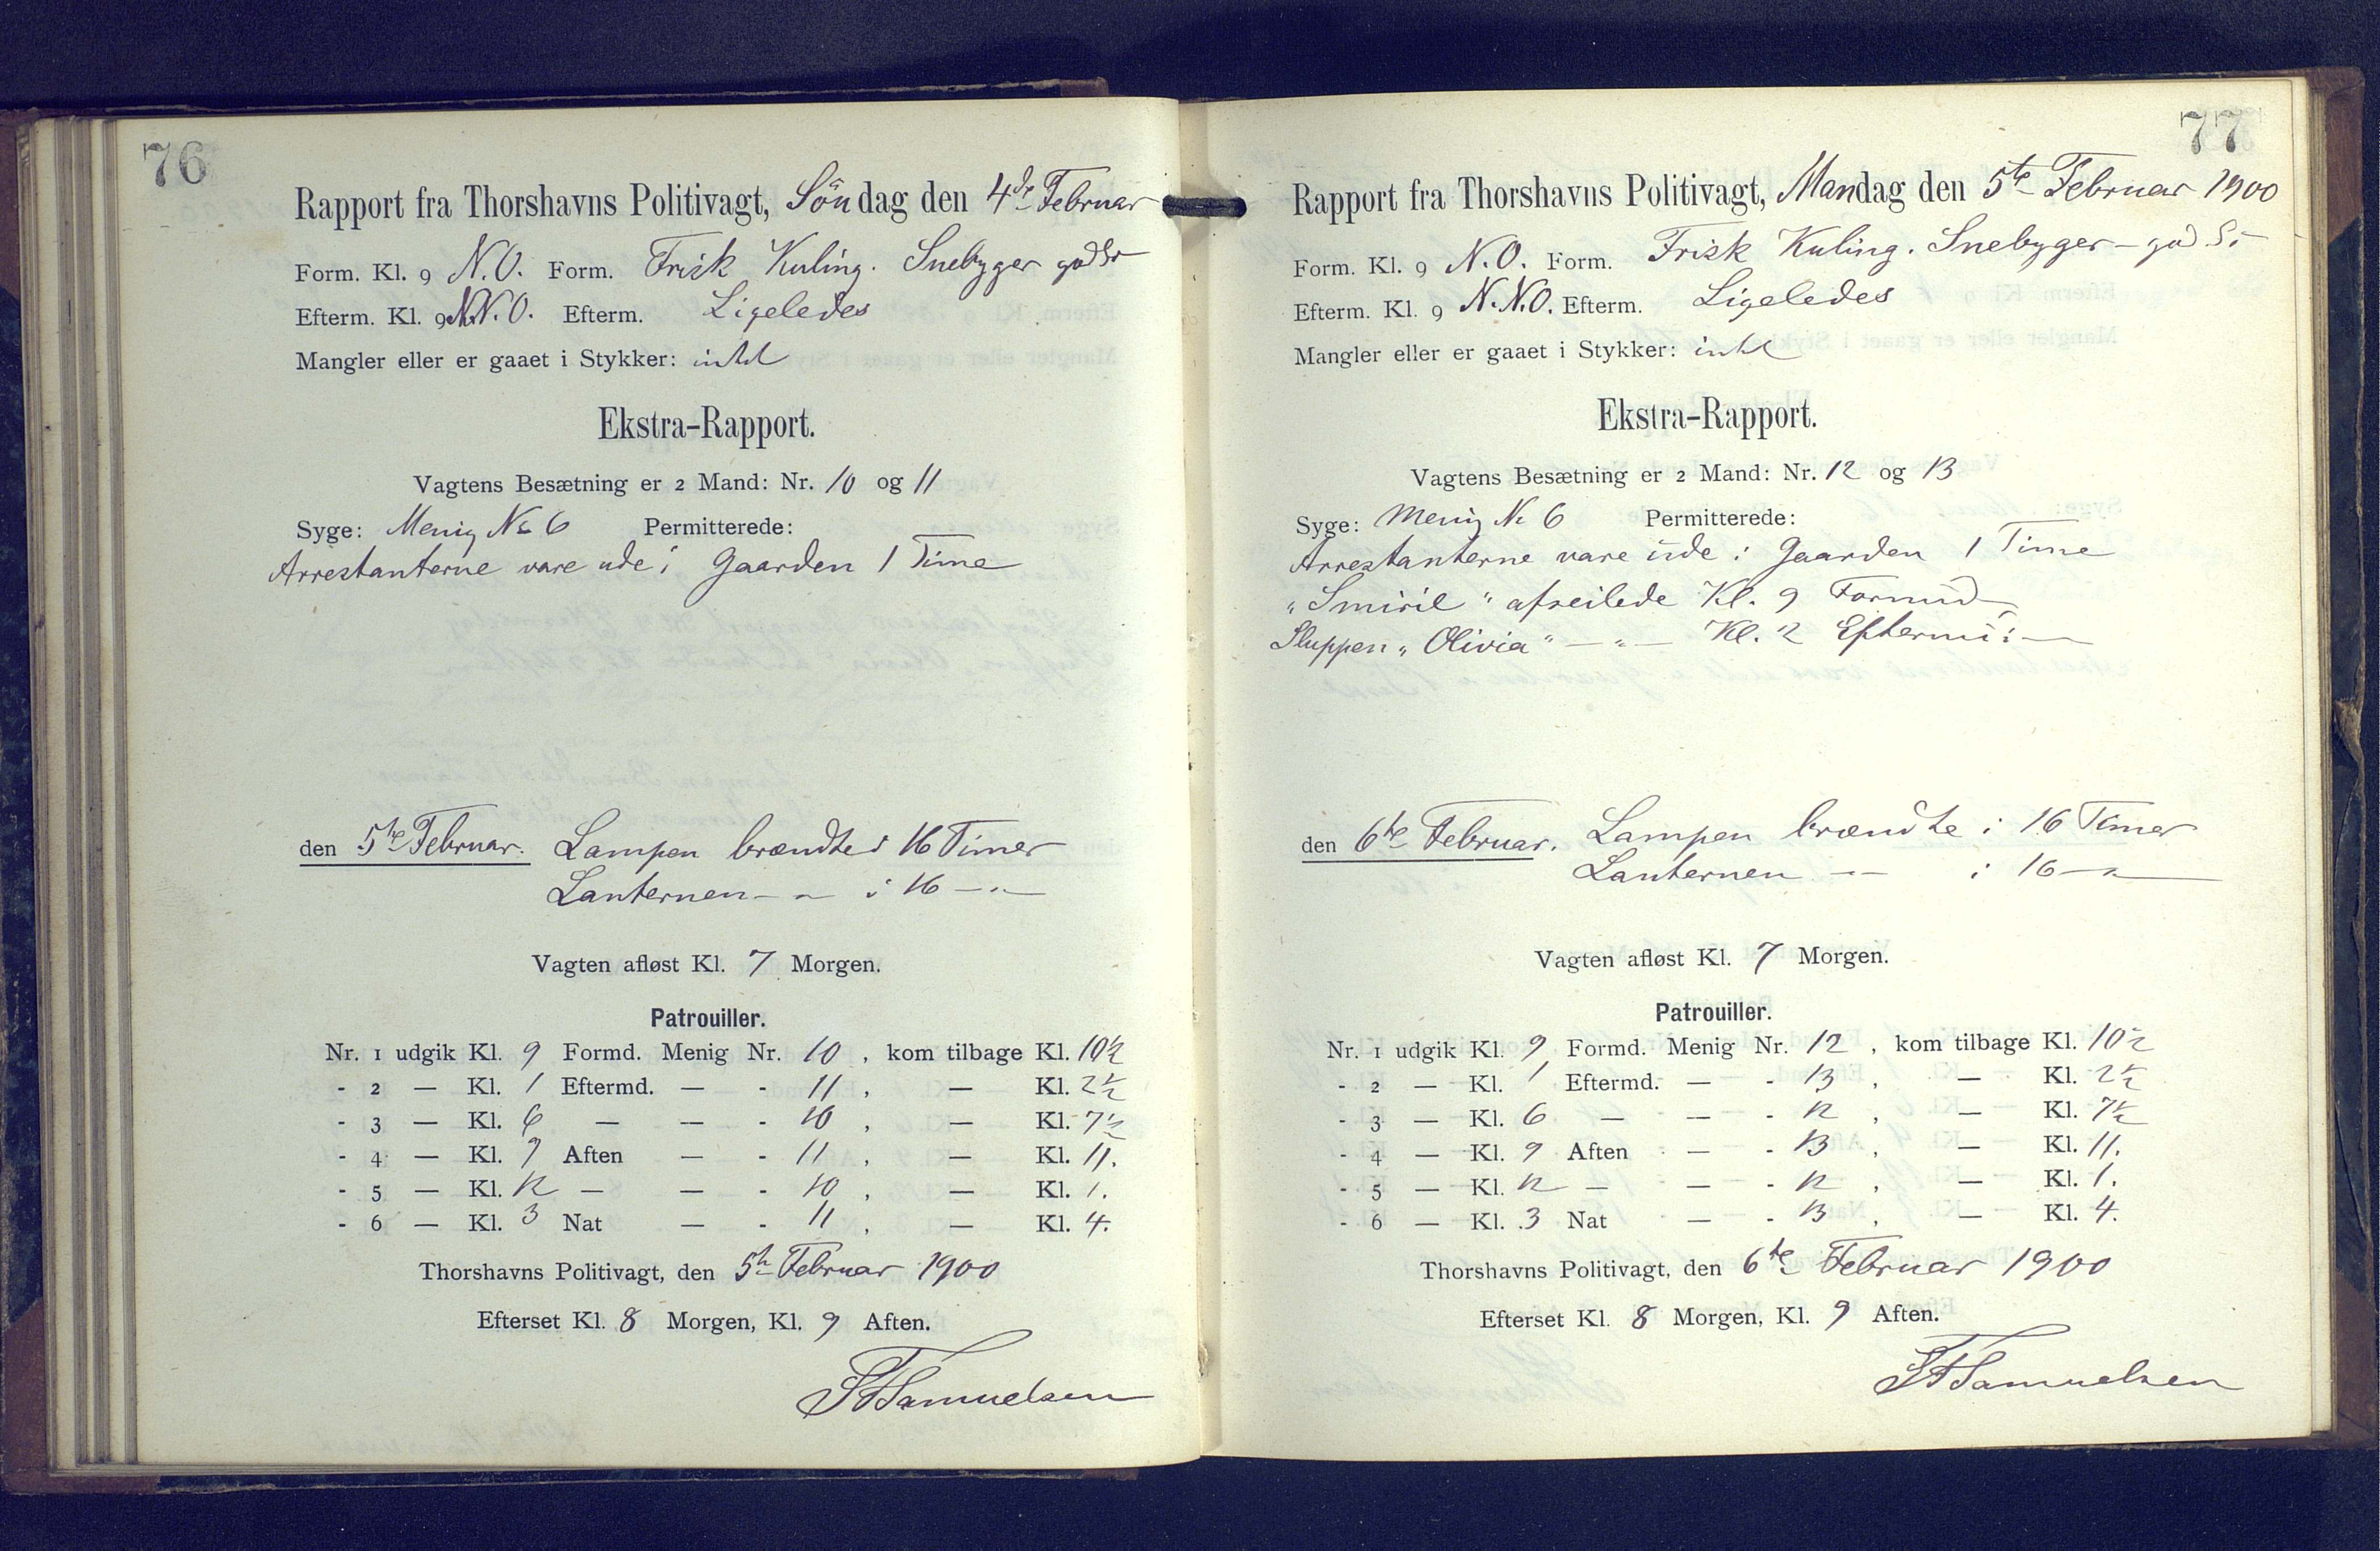 76
Rapport fra Thorshavns Politivagt, Söndag den 4de Februar
Form. Kl. 9 N.O. Form. Frisk Kuling. Snebyger god Si
Efterm. Kl. 9 N.N.O. Efterm. Ligeledes
Mangler eller er gaaet i Stykker: intet
Ekstra-Rapport.
Vagtens Besætning er 2 Mand: Nr. 10 og 11
Syge: Menig No 6 Permitterede:
Arrestanterne vare ude i Gaarden 1 Time
den 5te Februar. Lampen brændte i 16 Timer
Lanternen - „ - i 16 - „ -
Vagten afløst Kl. 7 Morgen.
Patrouiller.
Nr. 1 udgik Kl. 9 Formd. Menig Nr. 10 , kom tilbage Kl. 10½
- 2 — Kl. 1 Eftermd. — - 11 , — Kl. 2½
- 3 — Kl. 6 — — - 10 , — Kl. 7½
- 4 — Kl. 9 Aften — - 11 , — Kl. 11.
- 5 — Kl. 12 — — - 10 , — Kl. 1.
- 6 — Kl. 3 Nat — - 11 , — Kl. 4.
Thorshavns Politivagt, den 5te Februar 1900
Efterset Kl. 8 Morgen, Kl. 9 Aften.
Samuelsen
77
Rapport fra Thorshavns Politivagt, Mandag den 5te Februar 1900
Form. Kl. 9 N.O. Form. Frisk Kuling. Snebyger - god Si
Efterm. Kl. 9 N.N.O. Efterm. Ligeledes
Mangler eller er gaaet i Stykker: intet
Ekstra-Rapport.
Vagtens Besætning er 2 Mand: Nr. 12 og 13
Syge: Menig No 6 Permitterede:
Arrestanterne vare ude i Gaarden 1 Time
„Smiril" afseilede Kl. 9 Formid
Sluppen „Olivia" — „ — Kl. 2 Eftermi: —
den 6te Februar. Lampen brændte i 16 Timer
Lanternen - „ - i 16 - „ -
Vagten afløst Kl. 7 Morgen.
Patrouiller.
Nr. 1 udgik Kl. 9 Formd. Menig Nr. 12 , kom tilbage Kl. 10½
- 2 — Kl. 1 Eftermd. — - 13 , — Kl. 2½
- 3 — Kl. 6 — — - 12 , — Kl. 7½
- 4 — Kl. 9 Aften — - 13 , — Kl. 11.
- 5 — Kl. 12 — — - 12 , — Kl. 1.
- 6 — Kl. 3 Nat — - 13 , — Kl. 4.
Thorshavns Politivagt, den 6te Februar 1900
Efterset Kl. 8 Morgen, Kl. 9 Aften.
Samuelsen